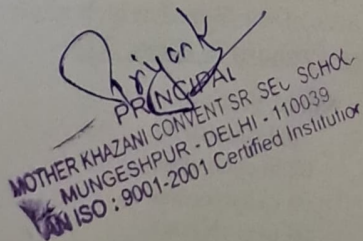 Priyank
PRINCIPAL
MOTHER KHAZANI CONVENT SR SEC SCHOOL
MUNGESHPUR - DELHI - 110039
AN ISO : 9001-2001 Certified Institution